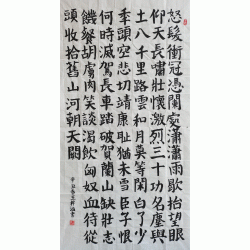 怒髮衝冠憑闌處瀟瀟雨歇抬望眼
仰天長嘯壯懷激烈三十功名塵與
土八千里路雲和月莫等閑白了少
秊頭空悲切靖康耻猶未雪臣子恨
何時滅駕長車踏破賀蘭山缺壯志
饑餐胡虜肉笑談渴飲匈奴血待從
頭收拾舊山河朝天闕